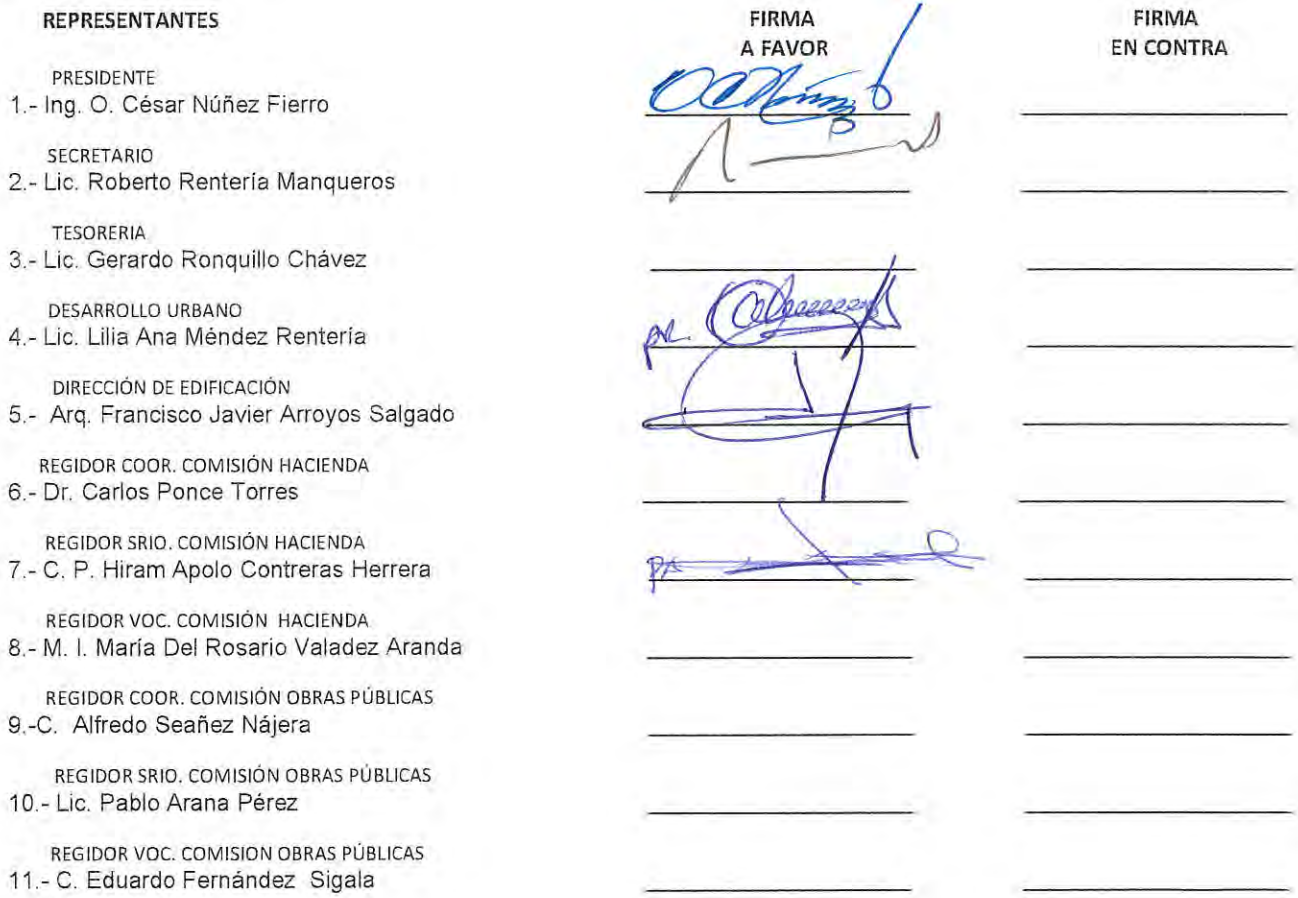 REPRESENTANTES FIRMA FIRMA
A FAVOR EN CONTRA
PRESIDENTE
1.- Ing. O. César Núñez Fierro
SECRETARIO
2.- Lic. Roberto Rentería Manqueros
TESORERIA
3.- Lic. Gerardo Ronquillo Chávez
DESARROLLO URBANO
4.- Lic. Lilia Ana Méndez Rentería
DIRECCIÓN DE EDIFICACIÓN
5.- Arq. Francisco Javier Arroyos Salgado
REGIDOR COOR. COMISIÓN HACIENDA
6.- Dr. Carlos Ponce Torres
REGIDOR SRIO. COMISIÓN HACIENDA
7.- C. P. Hiram Apolo Contreras Herrera
REGIDOR VOC. COMISIÓN HACIENDA
8.- M. I. María Del Rosario Valadez Aranda
REGIDOR COOR. COMISIÓN OBRAS PÚBLICAS
9.-C. Alfredo Seañez Nájera
REGIDOR SRIO. COMISIÓN OBRAS PÚBLICAS
10.- Lic. Pablo Arana Pérez
REGIDOR VOC. COMISION OBRAS PÚBLICAS
11.- C. Eduardo Fernández Sigala